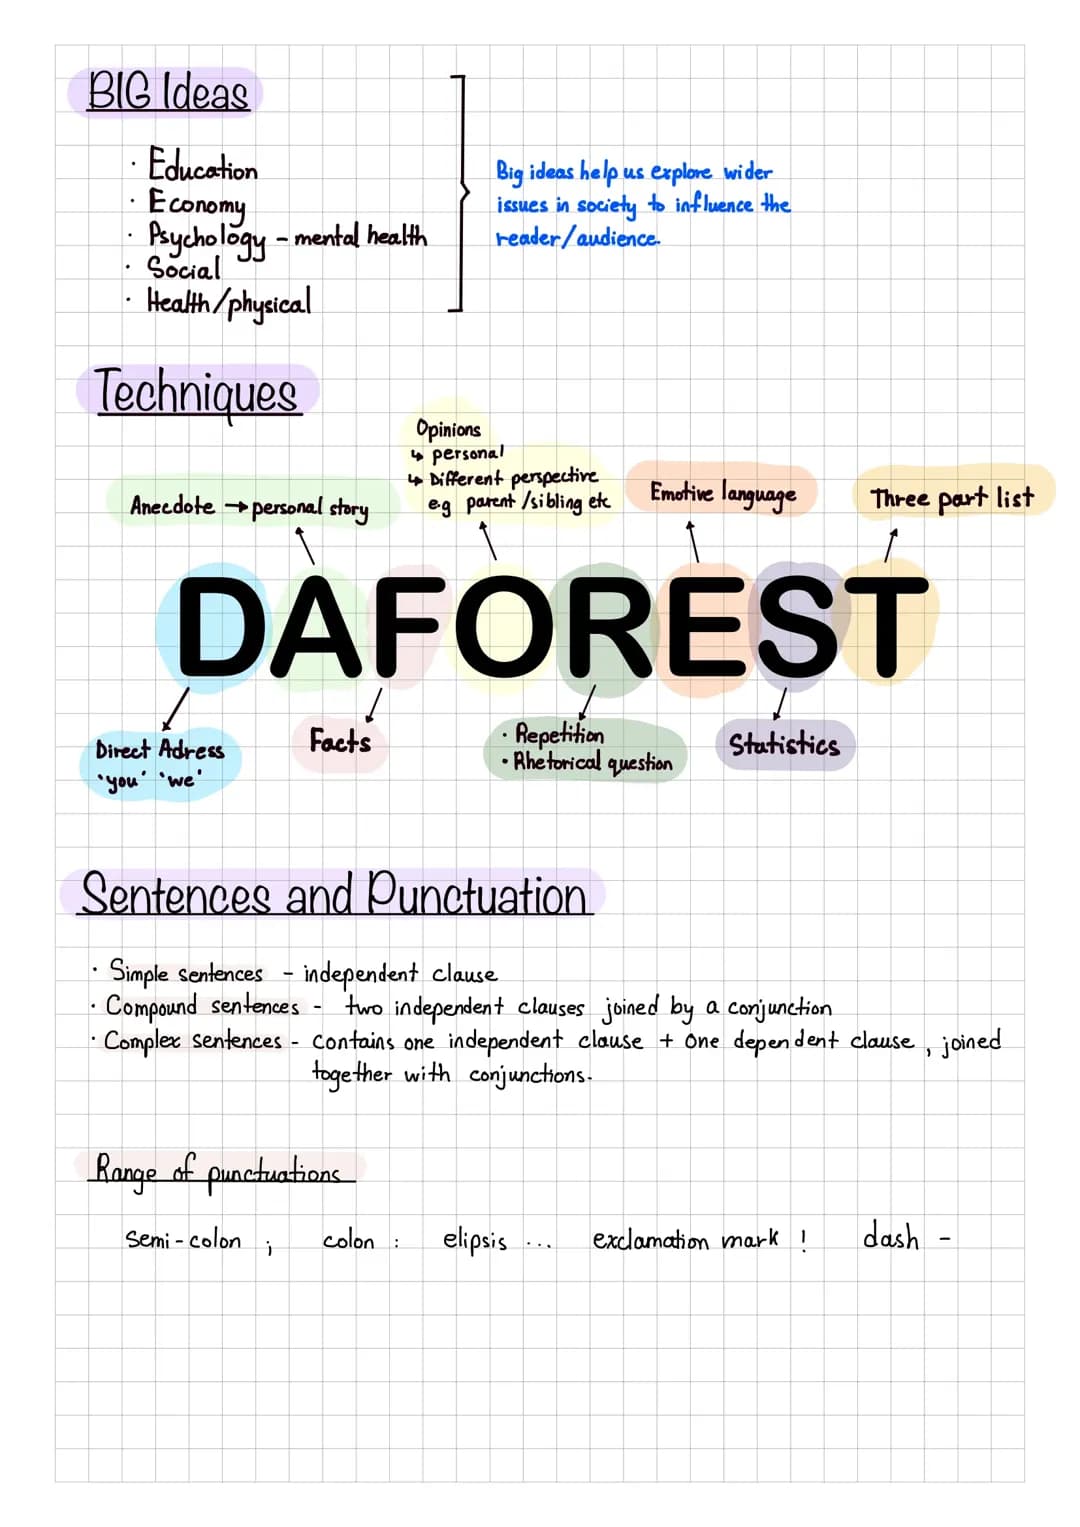 BIG Ideas
· Education
· Economy
· Psychology - mental health
· Social
· Health/physical
Big ideas help us explore wider
issues in society to influence the
reader/audience.
Techniques
Opinions
↳ personal
↳ Different perspective
e.g parent /sibling etc
Anecdote → personal story
Emotive language
Three part list
DAFOREST
Direct Adress
'you' 'we'
Facts
· Repetition
· Rhetorical question
Statistics
Sentences and Punctuation
· Simple sentences - independent clause
· Compound sentences - two independent clauses joined by a conjunction
· Complex sentences - contains one independent clause + one dependent clause, joined
together with conjunctions.
Range of punctuations
Semi-colon ; colon : elipsis ... exclamation mark ! dash -